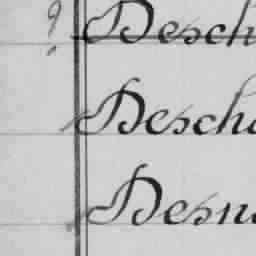 ? Desch
Desch
Desn